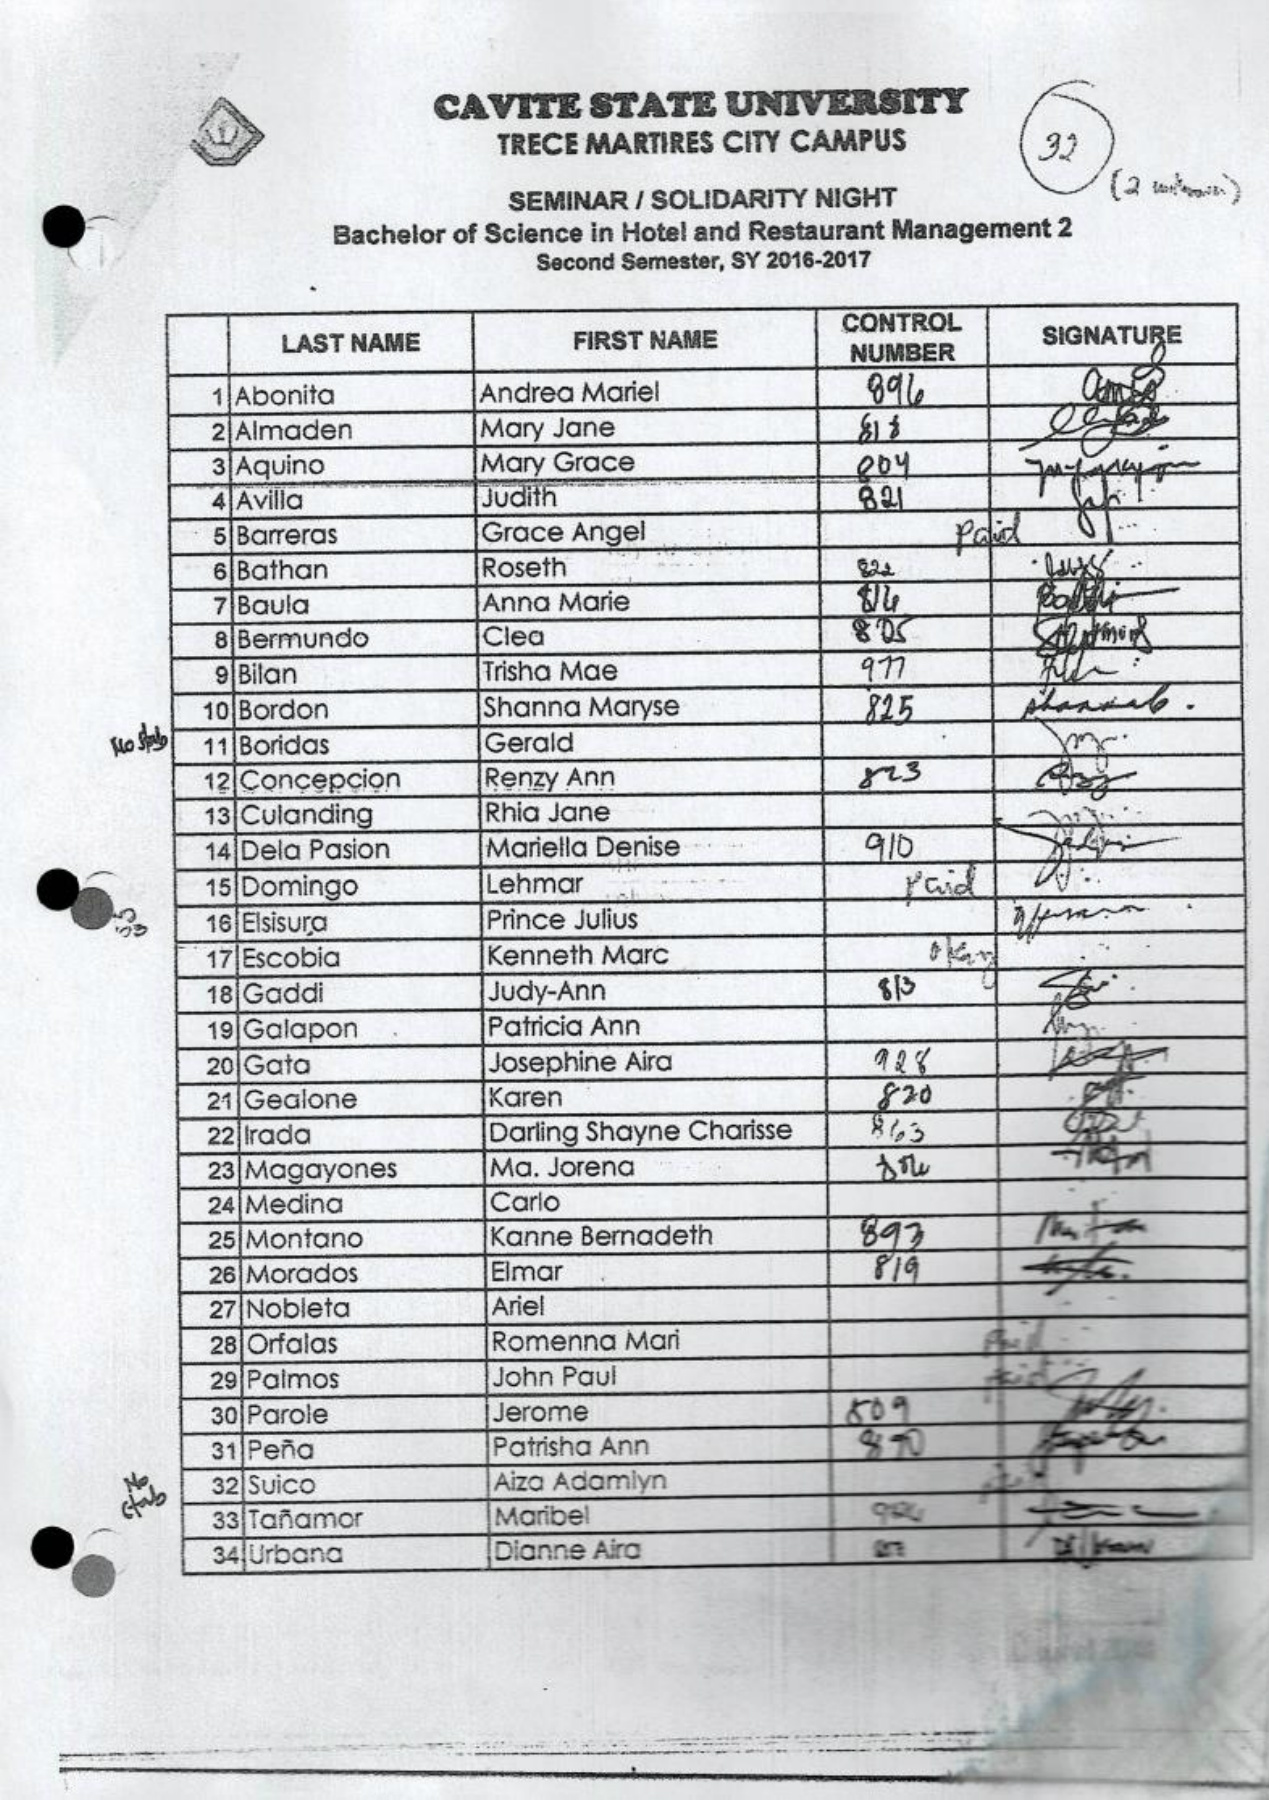 CAVITE STATE UNIVERSITY
TRECE MARTIRES CITY CAMPUS
32
(2 unknown)
SEMINAR / SOLIDARITY NIGHT
Bachelor of Science in Hotel and Restaurant Management 2
Second Semester, SY 2016-2017
LAST NAME FIRST NAME CONTROL NUMBER SIGNATURE
1 Abonita Andrea Mariel 896
2 Almaden Mary Jane 818
3 Aquino Mary Grace 804
4 Avilla Judith 821
5 Barreras Grace Angel Paid
6 Bathan Roseth 822
7 Baula Anna Marie 816
8 Bermundo Clea 805
9 Bilan Trisha Mae 977
10 Bordon Shanna Maryse 825
No stub 11 Boridas Gerald
12 Concepcion Renzy Ann 823
13 Culanding Rhia Jane
14 Dela Pasion Mariella Denise 910
15 Domingo Lehmar Paid
16 Elsisura Prince Julius
17 Escobia Kenneth Marc okay
18 Gaddi Judy-Ann 813
19 Galapon Patricia Ann
20 Gata Josephine Aira 928
21 Gealone Karen 820
22 Irada Darling Shayne Charisse 863
23 Magayones Ma. Jorena 806
24 Medina Carlo
25 Montano Kanne Bernadeth 893
26 Morados Elmar 819
27 Nobleta Ariel
28 Orfalas Romenna Mari paid
29 Palmos John Paul paid
30 Parole Jerome 809
31 Peña Patrisha Ann 870
No stub 32 Suico Aiza Adamlyn
33 Tañamor Maribel
34 Urbana Dianne Aira